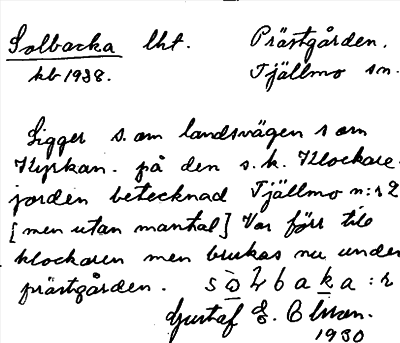 Solbacka lht. Prästgården.
kb 1938. Tjällmo sn.
Ligger s. om landsvägen s om
Kyrkan. på den s.k. Klockare-
jorden betecknad Tjällmo n:r 2
[men utan mantal] Var förr till
klockaren men brukas nu under
prästgården. sòlbaka:r
Gustaf E. Olsson.
1930